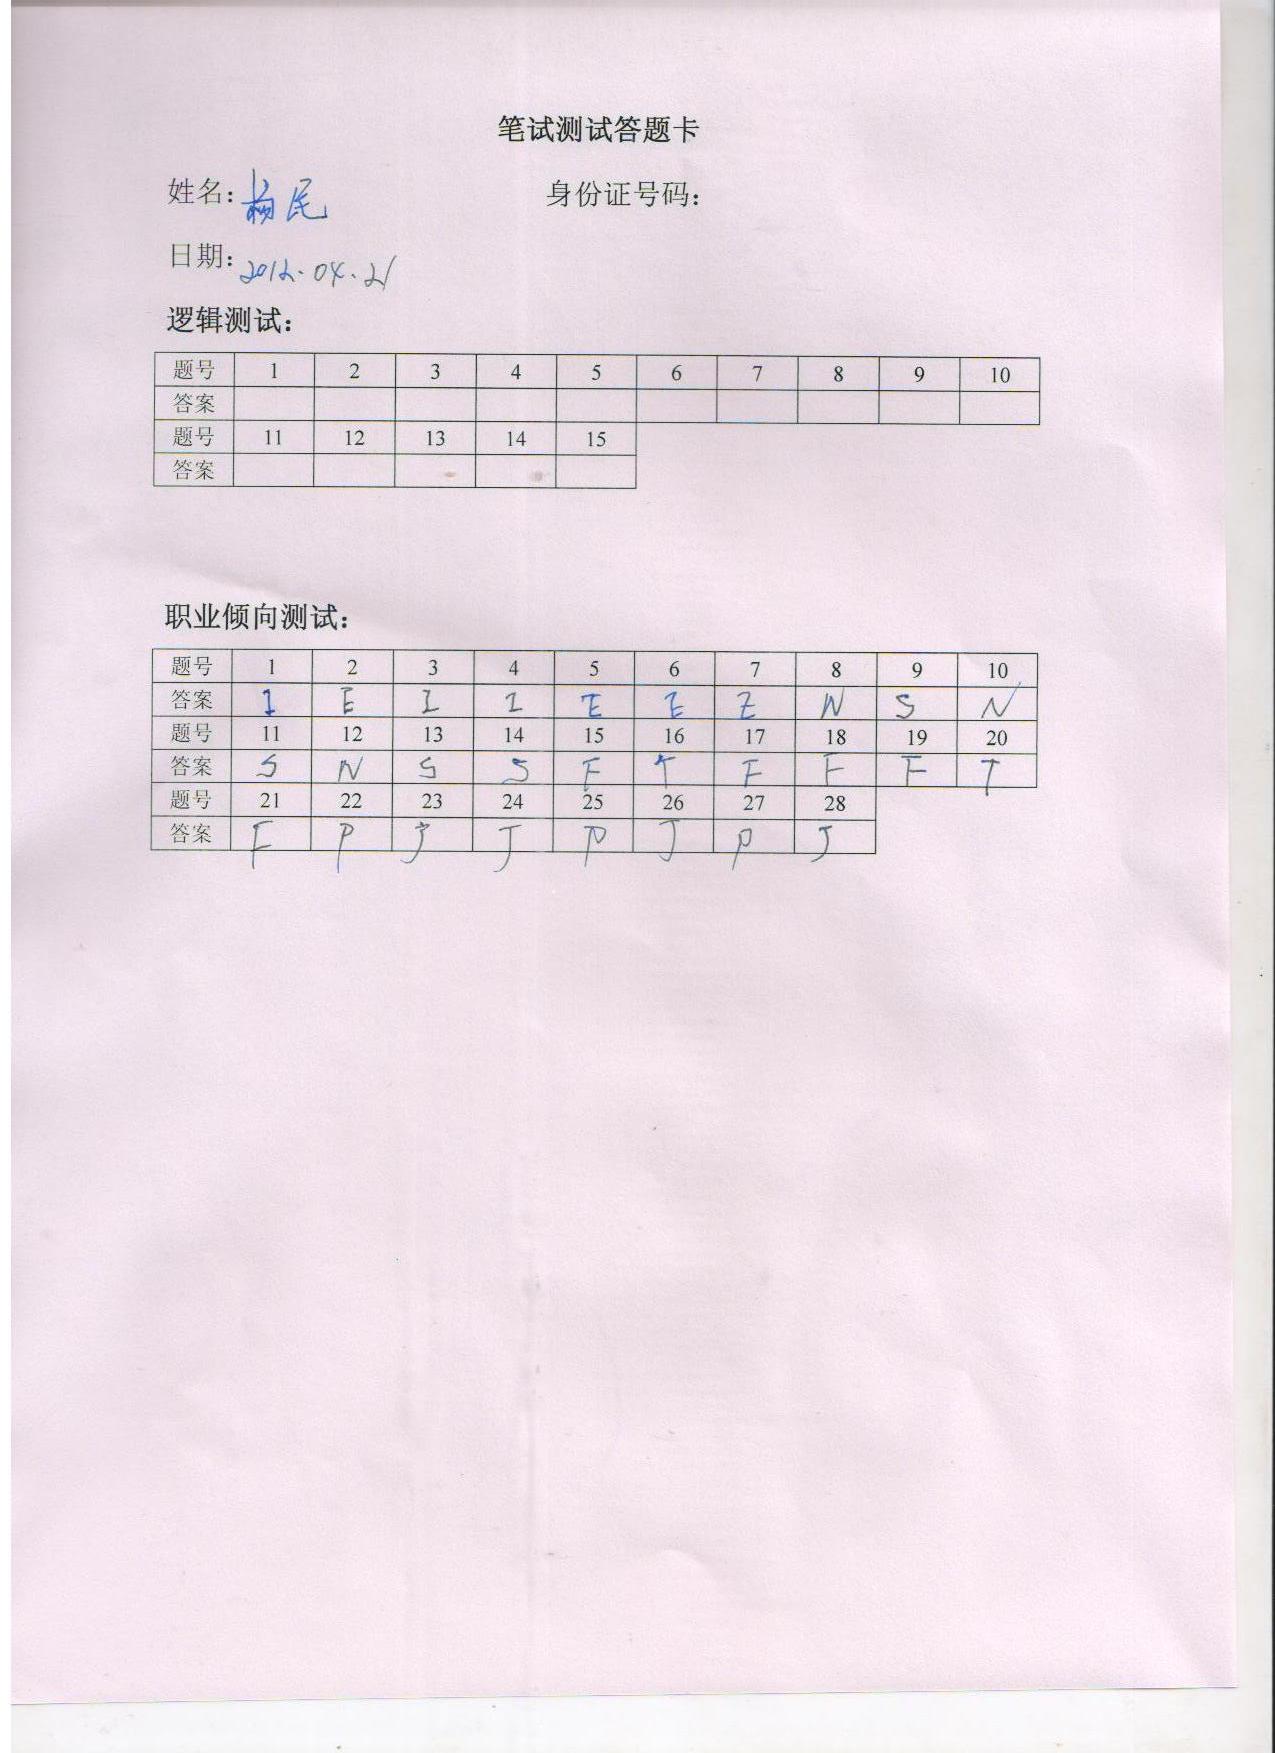 笔试测试答题卡
姓名：杨民 身份证号码：
日期：2012.04.21
逻辑测试：
题号 1 2 3 4 5 6 7 8 9 10
答案
题号 11 12 13 14 15
答案
职业倾向测试：
题号 1 2 3 4 5 6 7 8 9 10
答案 I E I I E E E N S N
题号 11 12 13 14 15 16 17 18 19 20
答案 S N S S F T F F F T
题号 21 22 23 24 25 26 27 28
答案 F P J J P J P J